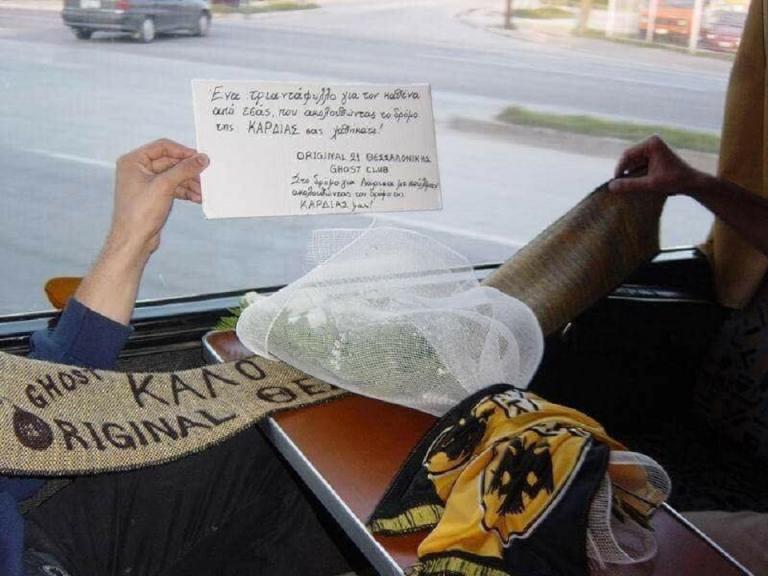 Ένα τριαντάφυλλο για τον καθένα
από εσάς, που ακολουθώντας το δρόμο
της ΚΑΡΔΙΑΣ σας χαθήκατε!
ORIGINAL 21 ΘΕΣΣΑΛΟΝΙΚΗΣ
GHOST CLUB
Στο δρόμο για Λάρισα
ακολουθώντας τον δρόμο της
ΚΑΡΔΙΑΣ μας!
GHOST ΚΑΛΟ
ORIGINAL ΘΕ